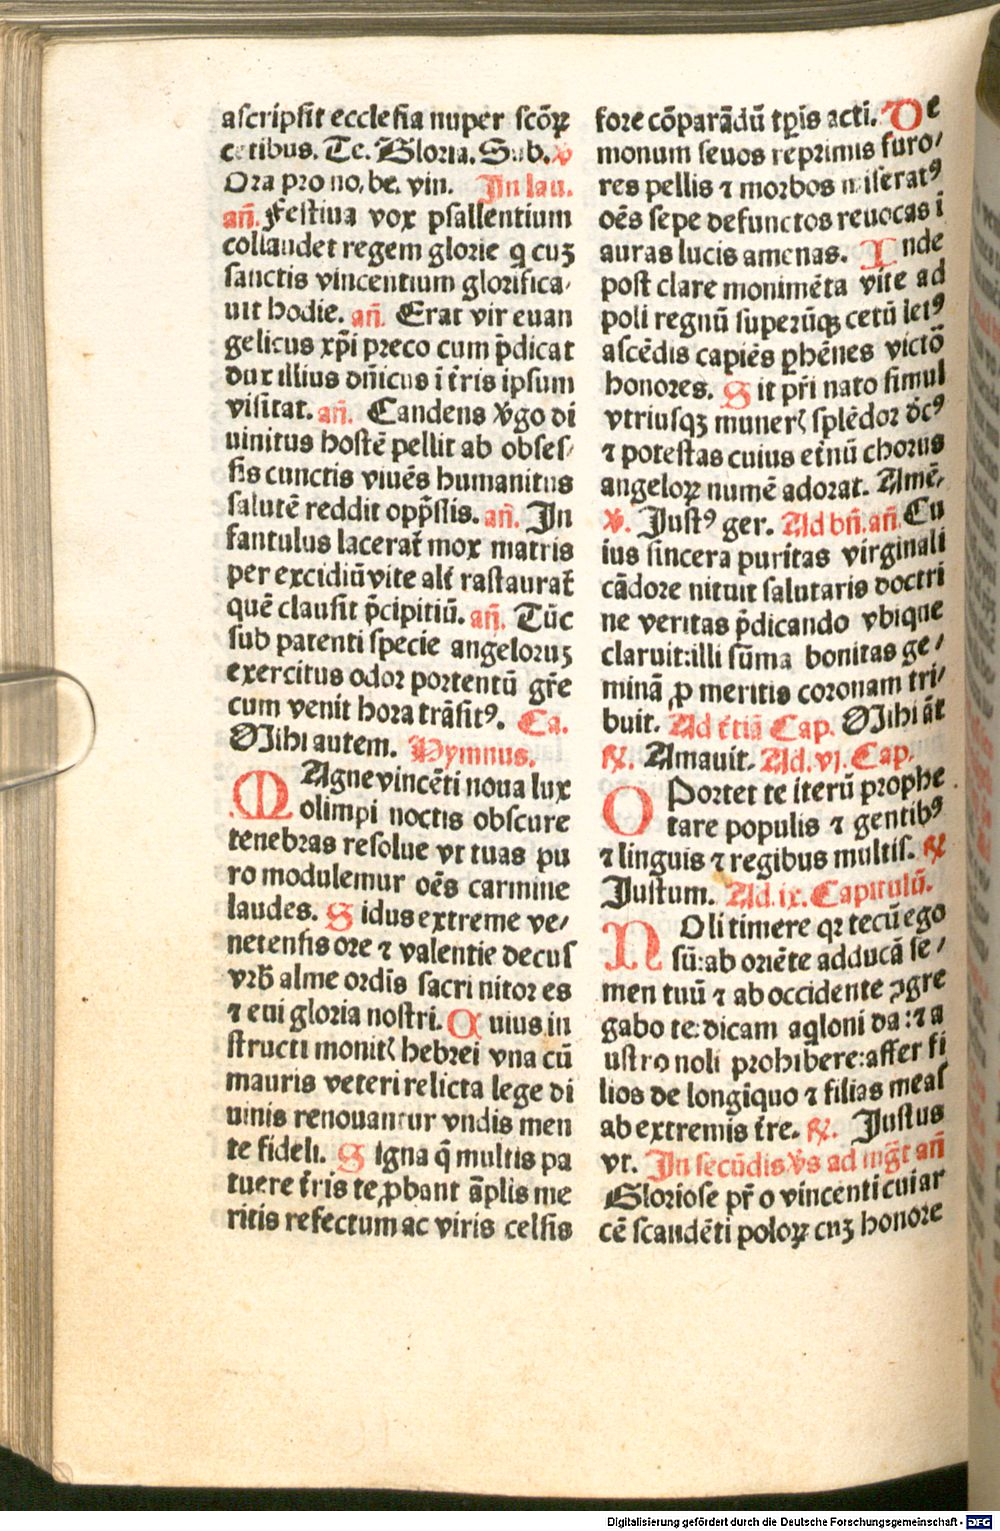 ascripsit ecclesia nuper sco̅ꝝ
cetibus. Te. Gloria. Sub. ℣
Ora pro no. be. vin. In lau.
an̅. Festiua vox psallentium
collaudet regem glorie q cuꝫ
sanctis vincentium glorifica⸗
uit hodie. an̅. Erat vir euan
gelicus xp̅i preco cum p̅dicat
dux illius dn̅icus i̅ t̅ris ipsum
visitat. an̅. Candens v̅go di
uinitus hoste̅ pellit ab obses⸗
sis cunctis viue̅s humanitus
salute̅ reddit opp̅ssis. an̅. In
fantulus lacerat̅ mox matris
per excidiu̅ vite alt̅ rastaurat̅
que̅ clausit p̅cipitiu̅. an̅. Tu̅c
sub patenti specie angeloruꝫ
exercitus odor portentu̅ gr̅e
cum venit hora tra̅sitꝰ. Ca.
Mihi autem. Hymnus.
MAgne vince̅ti noua lux
olimpi noctis obscure
tenebras resolue vt tuas pu
ro modulemur oe̅s carmine
laudes. Sidus extreme ve⸗
netensis ore ⁊ valentie decus
vrb̅ alme ordis̅ sacri nitor es
⁊ eui gloria nostri. Quius in
structi monitꝭ hebrei vna cu̅
mauris veteri relicta lege di
uinis renouantur vndis men
te fideli. Signa q̅ multis pa
tuere t̅ris te ꝓbant a̅plis me
ritis refectum ac viris celsis
fore co̅para̅du̅ tp̅is acti. De
monum seuos reprimis furo⸗
res pellis ⁊ morbos miseratꝰ
oe̅s sepe defunctos reuocas i
auras lucis amenas. Inde
post clare monime̅ta vite ad
poli regnu̅ superu̅qꝫ cetu̅ letꝰ
asce̅dis capie̅s ꝑhe̅nes victo̅
honores. Sit pr̅i nato simul
vtriusqꝫ munerꝭ sple̅dor o̅cꝰ
⁊ potestas cuius et̅nu̅ chorus
angeloꝝ nume̅ adorat. Ame̅.
℣. Justꝰ ger. Ad bn̅. an̅. Cu
ius sincera puritas virginali
ca̅dore nituit salutaris doctri
ne veritas p̅dicando vbique
claruit:illi su̅ma bonitas ge⸗
mina̅ ꝓ meritis coronam tri⸗
buit. Ad t̅tia̅ Cap. Mihi a̅t
℞. Amauit. Ad. vj. Cap.
OPortet te iteru̅ prophe
tare populis ⁊ gentibꝰ
⁊ linguis ⁊ regibus multis. ℞
Justum. Ad. ix. Capitulu̅.
NOli timere qꝛ tecu̅ ego
su̅:ab orie̅te adduca̅ se⸗
men tuu̅ ⁊ ab occidente ꝯgre
gabo te:dicam aq̅loni da:⁊ a
ustro noli prohibere:affer fi
lios de longi̅quo ⁊ filias meas
ab extremis t̅re. ℞. Justus
vt. In secu̅dis v̅s ad mg̅t an̅
Gloriose pr̅ o vincenti cui ar
ce̅ scande̅ti poloꝝ cuꝫ honore
Digitalisierung gefördert durch die Deutsche Forschungsgemeinschaft - DFG